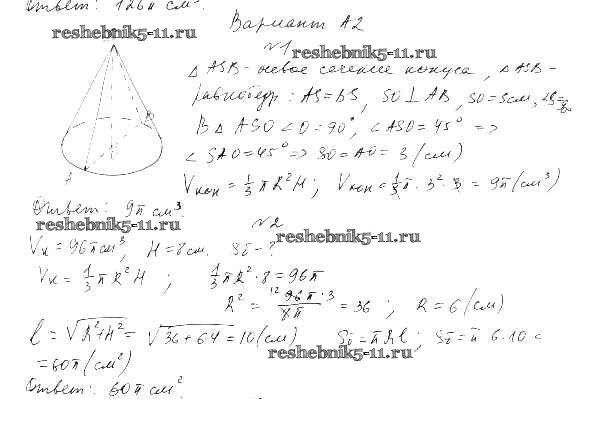 Ответ: 126π см³.
Вариант А2
reshebnik5-11.ru
№1
reshebnik5-11.ru
△ ASB - осевое сечение конуса, △ ASB -
равнобедр: AS=BS, SO⊥AB, SO=3см,
В △ ASO ∠O=90°, ∠ASO=45° =>
∠SAO=45° => SO=AO=3(см)
Vкон = 1/3 πR²H; Vкон = 1/3 π·3²·3 = 9π(см³)
A
B
Ответ: 9π см³.
reshebnik5-11.ru
№2
reshebnik5-11.ru
Vк=96π см³, H=8см. Sб-?
Vк = 1/3 πR²H ; 1/3 πR²·8=96π
R² = 12 96π·3/8π = 36 ; R=6(см)
l = √R²+H² = √36+64 = 10(см) Sб=πRl ; Sб=π 6·10 =
reshebnik5-11.ru
=60π(см²)
Ответ: 60π см².